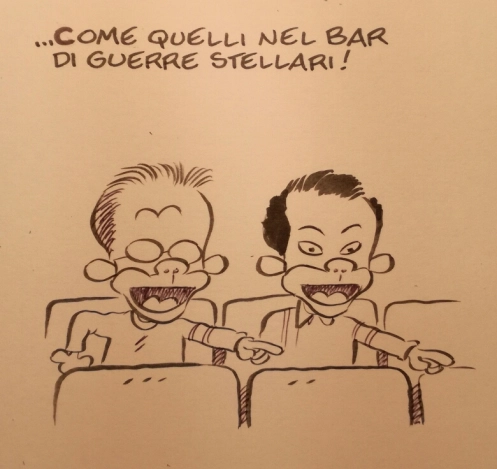 ...COME QUELLI NEL BAR
DI GUERRE STELLARI!